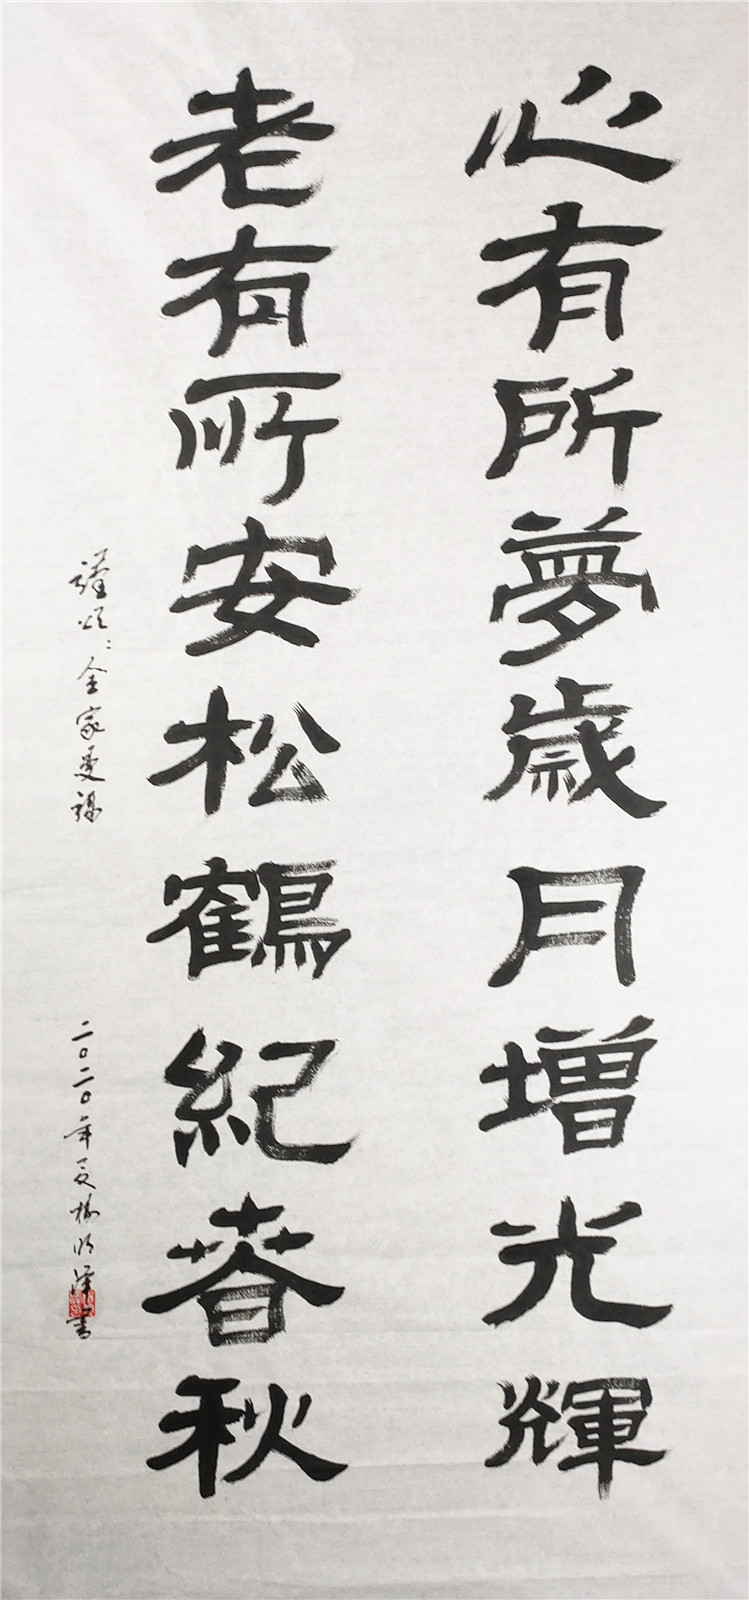 心有所夢歲月增光輝
老有所安松鶴紀春秋
謹頌：全家曼福
二〇二〇年夏楊明澤書